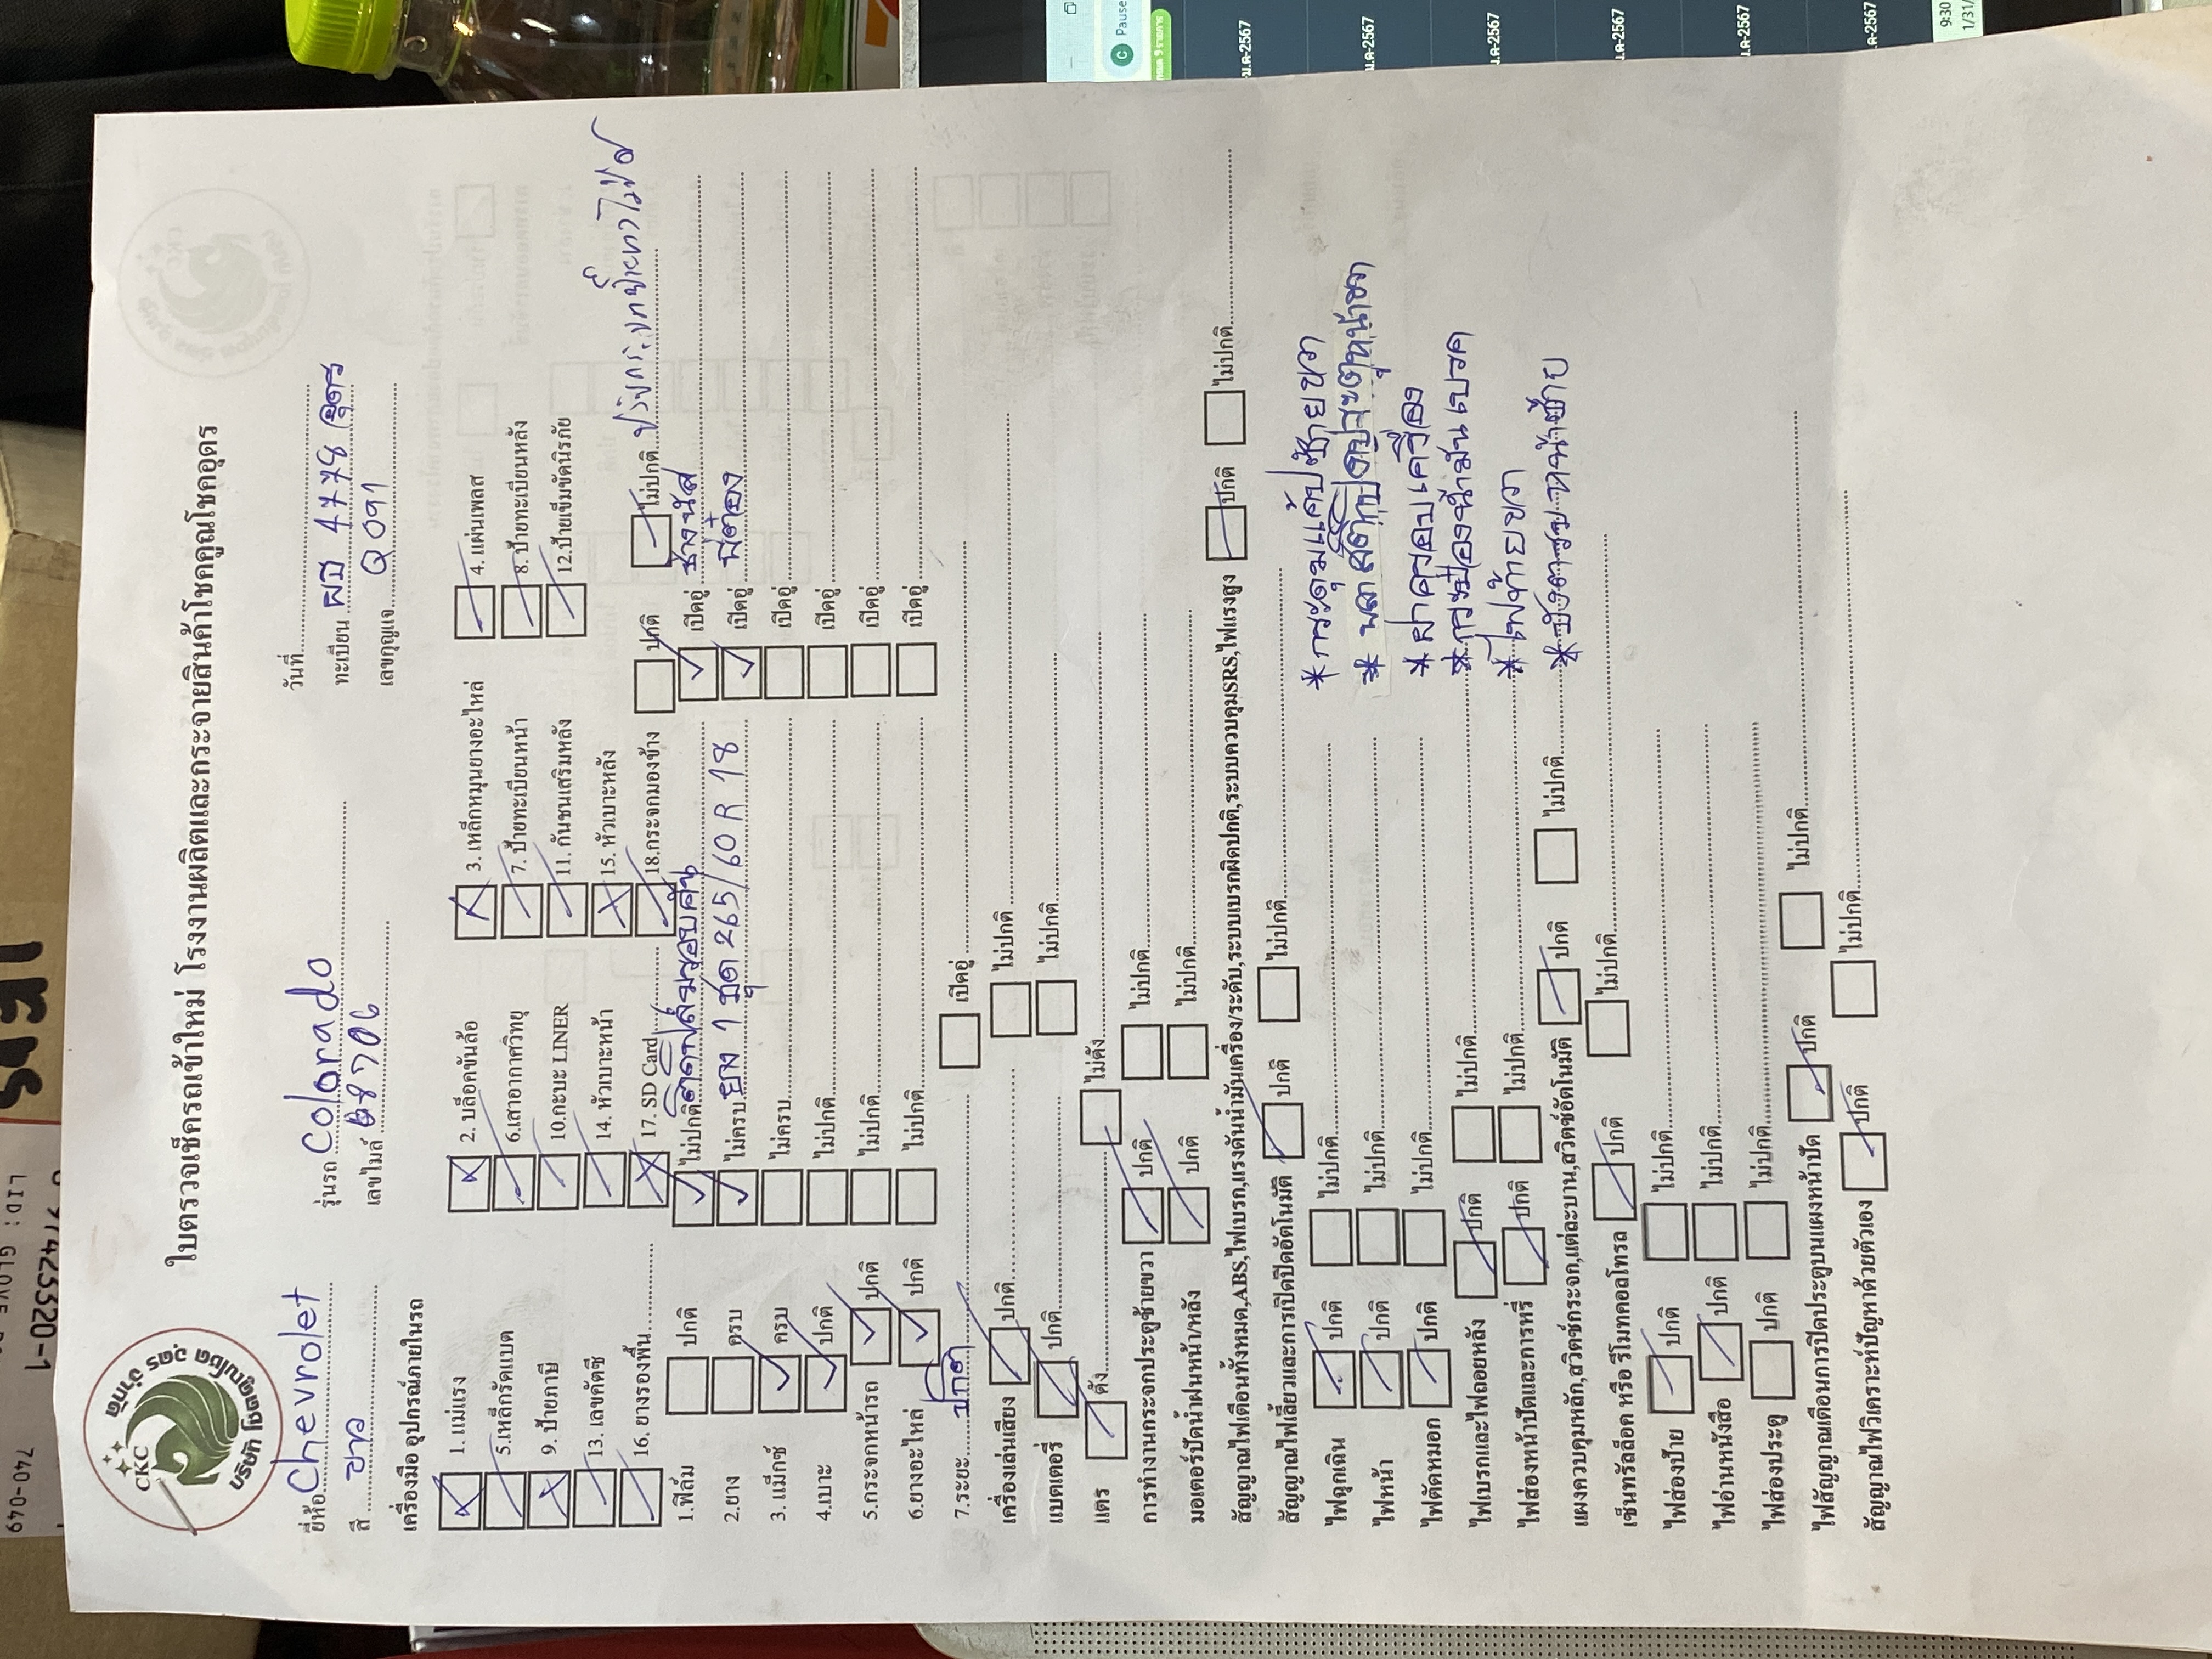 ใบตรวจเช็ครถเข้าใหม่ โรงงานผลิตและกระจายสินค้าโชคคูณโชคอุดร
CKC
บริษัท โชคคูณโชค อุดร จำกัด
วันที่
ยี่ห้อ Chevrolet รุ่นรถ Colorado ทะเบียน 4778 อุดร
สี ขาว เลขไมล์ 8706 เลขกุญแจ Q091
เครื่องมือ อุปกรณ์ภายในรถ
1. แม่แรง 2. บล็อคขันล้อ 3. เหล็กหมุนยางอะไหล่ 4. แผ่นเพลส
5.เหล็กรัดแบต 6.เสาอากาศวิทยุ 7. ป้ายทะเบียนหน้า 8. ป้ายทะเบียนหลัง
9. ป้ายภาษี 10.กะบะ LINER 11. กันชนเสริมหลัง 12.ป้ายเข็มขัดนิรภัย
13. เลขคัตซี 14. หัวเบาะหน้า 15. หัวเบาะหลัง
16. ยางรองพื้น 17. SD Card 18.กระจกมองข้าง ปกติ ไม่ปกติ
1.ฟิล์ม ปกติ ไม่ปกติ ติดฟิล์มรอบคัน เปิดอู่ ช่างนัส
2.ยาง ครบ ไม่ครบ ยาง 1 ชุด 265/60 R 18 เปิดอู่ พี่ต๋อง
3. แม็กซ์ ครบ ไม่ครบ เปิดอู่
4.เบาะ ปกติ ไม่ปกติ เปิดอู่
5.กระจกหน้ารถ ปกติ ไม่ปกติ เปิดอู่
6.ยางอะไหล่ ปกติ ไม่ปกติ เปิดอู่
7.ระยะ ปกติ เปิดอู่
เครื่องเล่นเสียง ปกติ ไม่ปกติ
แบตเตอรี่ ปกติ ไม่ปกติ
แตร ดัง ไม่ดัง
การทำงานกระจกประตูซ้ายขวา ปกติ ไม่ปกติ
มอเตอร์ปัดน้ำฝนหน้า/หลัง ปกติ ไม่ปกติ
สัญญาณไฟเตือนทั้งหมด,ABS,ไฟเบรก,แรงดันน้ำมันเครื่อง/ระดับ,ระบบเบรกผิดปกติ,ระบบควบคุมSRS,ไฟแรงสูง ปกติ ไม่ปกติ
สัญญาณไฟเลี้ยวและการเปิดปิดอัตโนมัติ ปกติ ไม่ปกติ
ไฟฉุกเฉิน ปกติ ไม่ปกติ
* กระดุมแค้ปซ้ายขวา
ไฟหน้า ปกติ ไม่ปกติ
ไฟตัดหมอก ปกติ ไม่ปกติ
* ฝาครอบเครื่อง
ไฟเบรกและไฟถอยหลัง ปกติ ไม่ปกติ
* กระป๋องน้ำมันเบรค
ไฟส่องหน้าปัดและการหรี่ ปกติ ไม่ปกติ
* ไฟท้ายขวา
แผงควบคุมหลัก,สวิตช์กระจก,แต่ละบาน,สวิตช์อัตโนมัติ ปกติ ไม่ปกติ
เซ็นทรัลล็อค หรือ รีโมทคอลโทรล ปกติ ไม่ปกติ
ไฟส่องป้าย ปกติ ไม่ปกติ
ไฟอ่านหนังสือ ปกติ ไม่ปกติ
ไฟส่องประตู ปกติ ไม่ปกติ
ไฟสัญญาณเตือนการปิดประตูบนแผงหน้าปัด ปกติ ไม่ปกติ
สัญญาณไฟวิเคราะห์ปัญหาด้วยตัวเอง ปกติ ไม่ปกติ
C Pause
9:30
1/31/
740-049